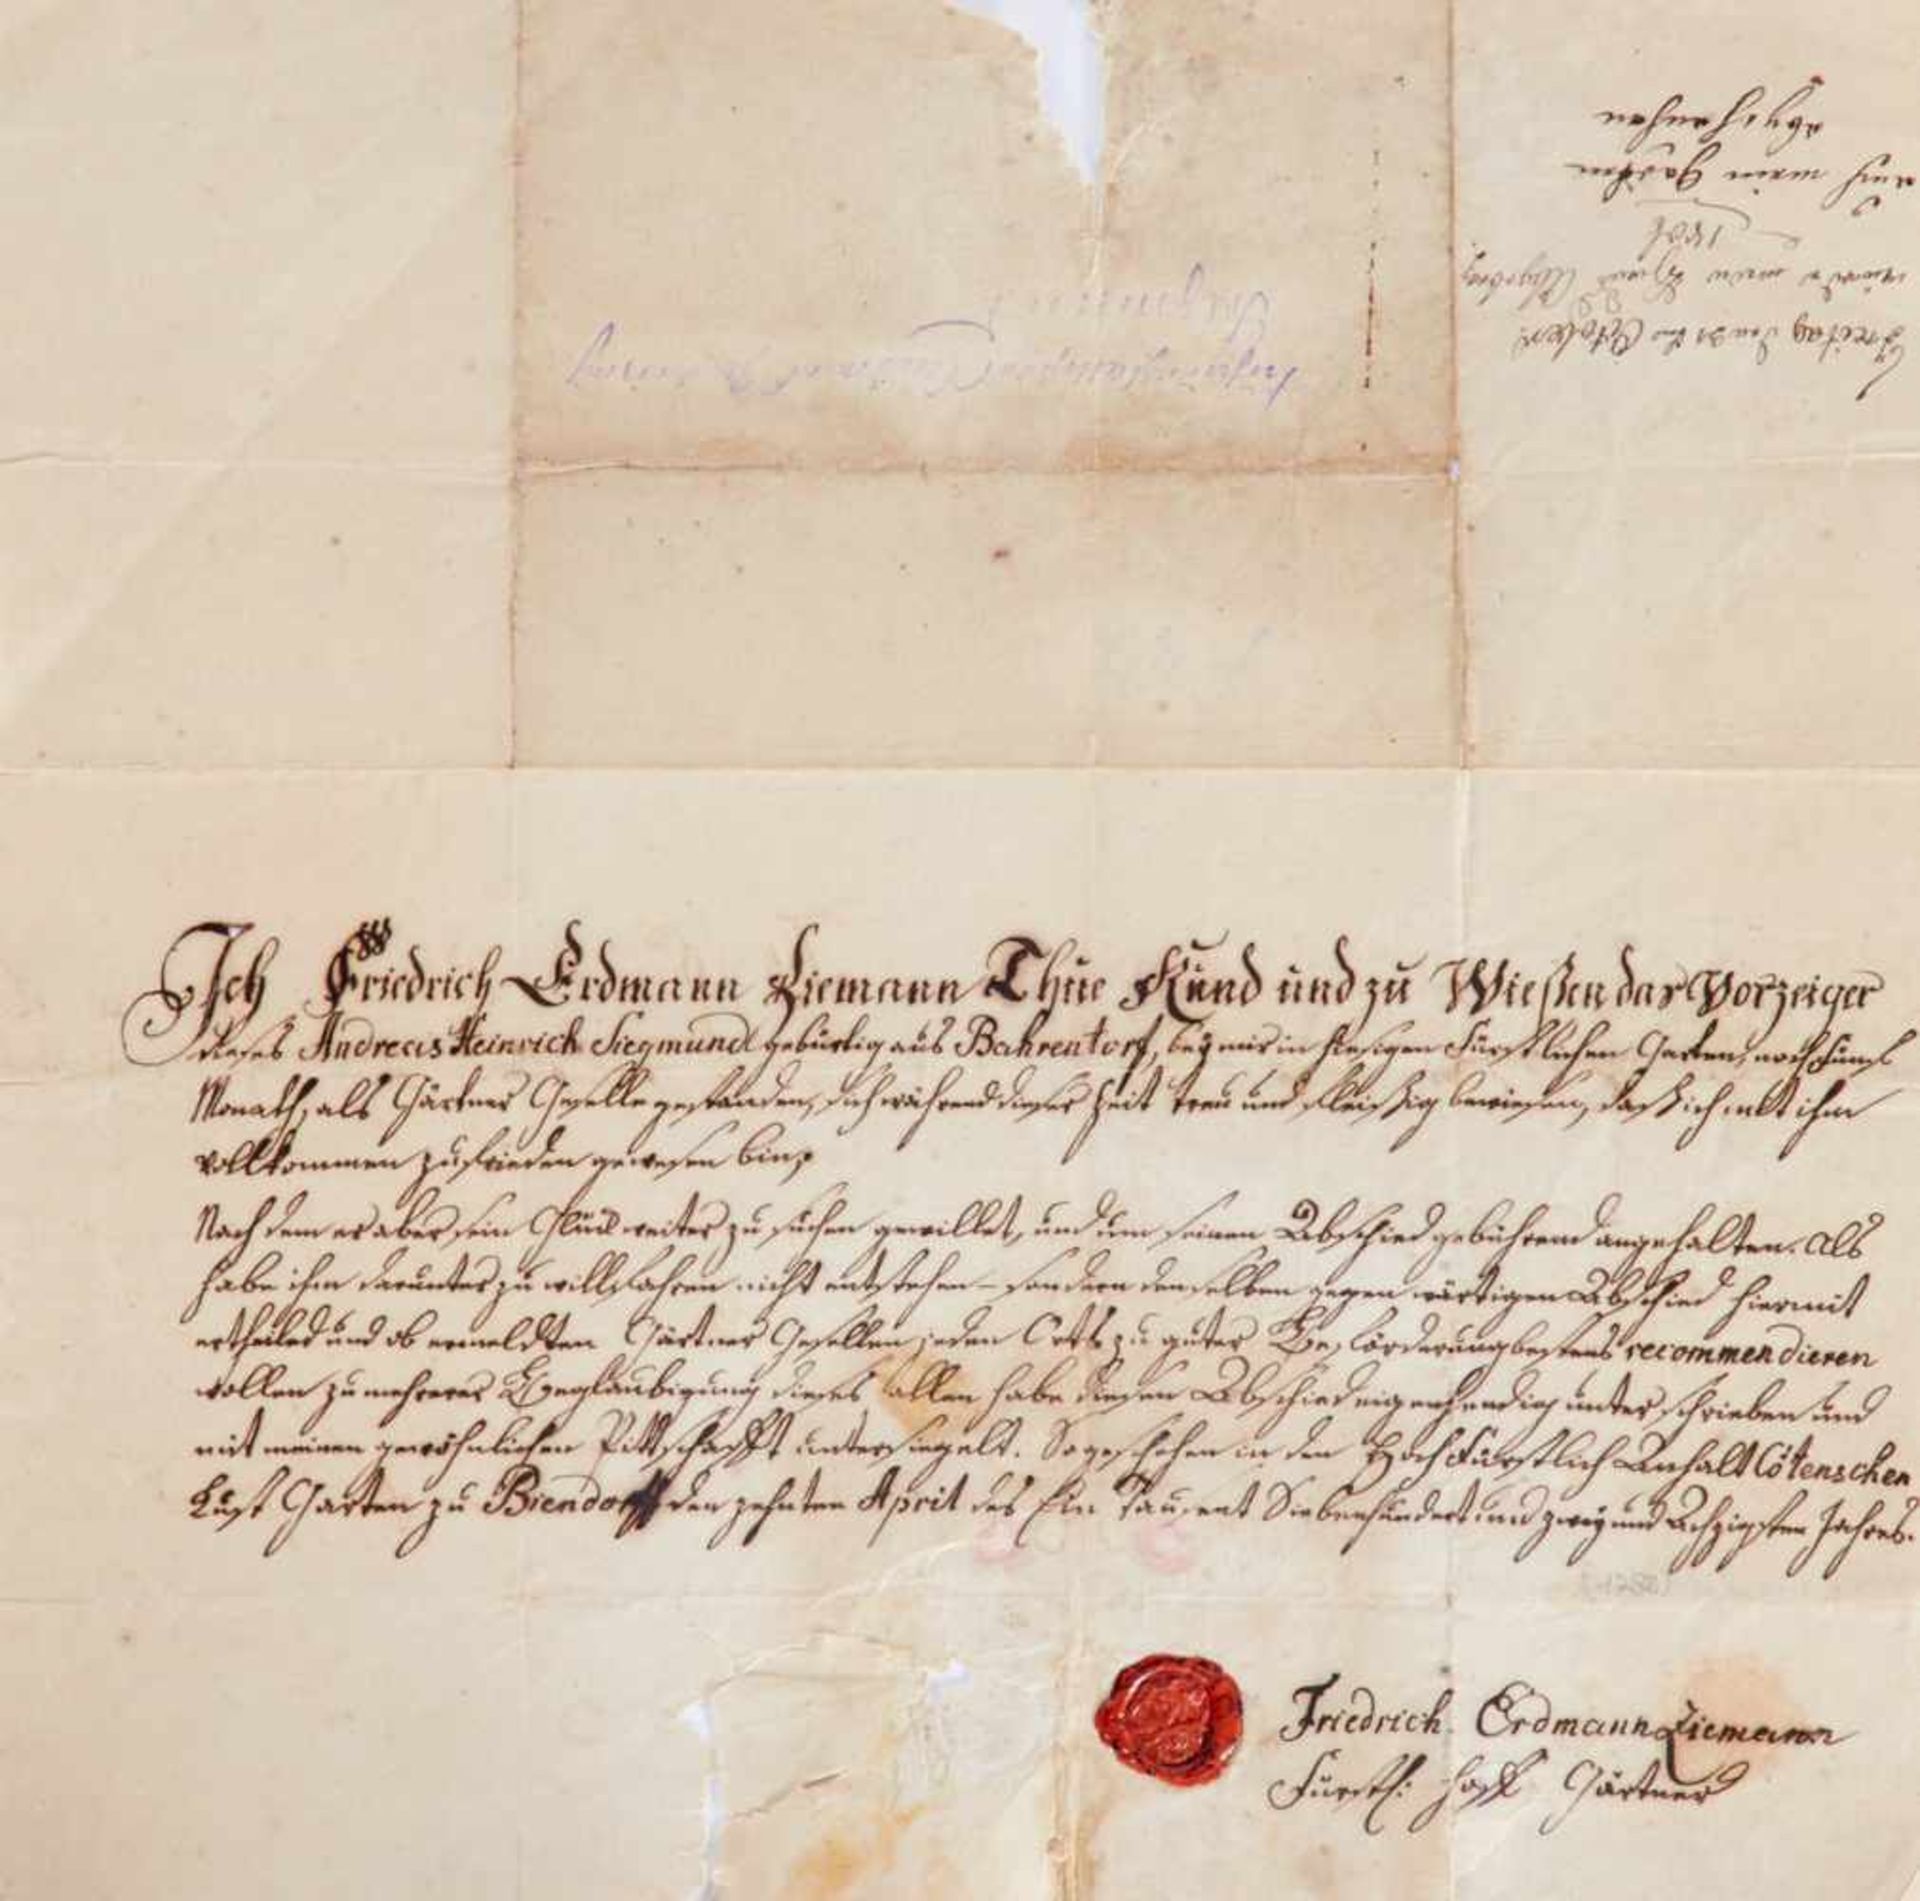 Ich Friedrich Erdmann Ziemann Thue Kund und zu Wießen das Vorzeiger
dieses Andreas Heinrich Siegmund gebürtig aus Bahrentorf, bey mir in hiesigen Fürstlichen Garten,
Monath, als Gärtner Geselle gestanden, sich während dieser Zeit treu und fleißig bewiesen, daß ich mit ihm
vollkommen zufrieden gewesen bin,
Nach dem er aber sein Glück weiter zu suchen gewillet, und um seinen Abschied gebührend angehalten. als
habe ihm darunter zu willfahren nicht entstehen - sondern denselben gegen wärtigen Abschied hiermit
ertheilet und ob ermeldten Gärtner Gesellen jeden Orts zu guter Beförderung bestens recommendieren
wollen zu mehrerer Beglaubigung dieses allen habe diesen Abschied eigenhendig unter schrieben und
mit meinen gewöhnlichen Pittschafft untersiegelt. So geschehen in den Hoch Fürstlich Anhalt Cötenschen
Lust Garten zu Biendorff den zehnten April des Ein Tausent Siebenhundert und zwey und Achzigsten Jahres.
Friedrich Erdmann Ziemann
Fürstl: Hoff Gärtner
Freitag den 31 ten October